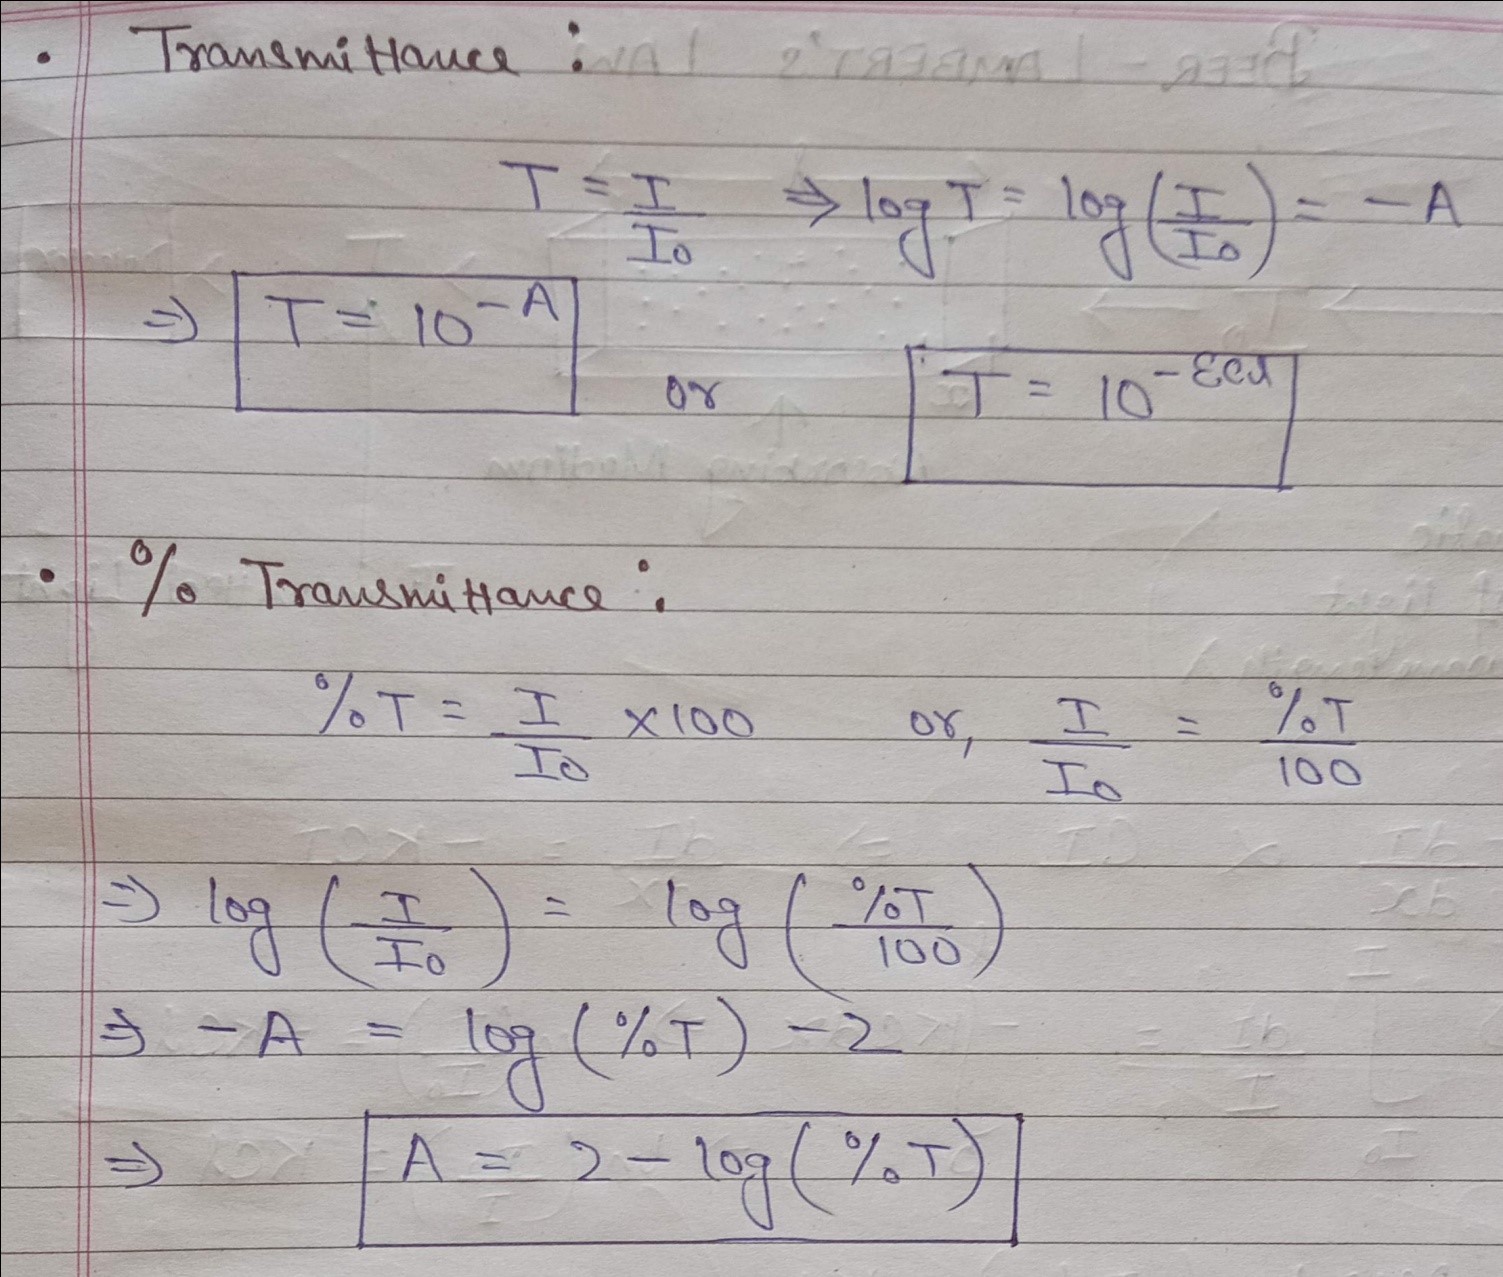 • Transmittance :
T = I/I₀ ⇒ log T = log(I/I₀) = -A
⇒ T = 10^-A
or T = 10^-εcl
• % Transmittance :
%T = I/I₀ × 100 or, I/I₀ = %T/100
⇒ log (I/I₀) = log (%T/100)
⇒ -A = log (%T) - 2
⇒ A = 2 - log (%T)